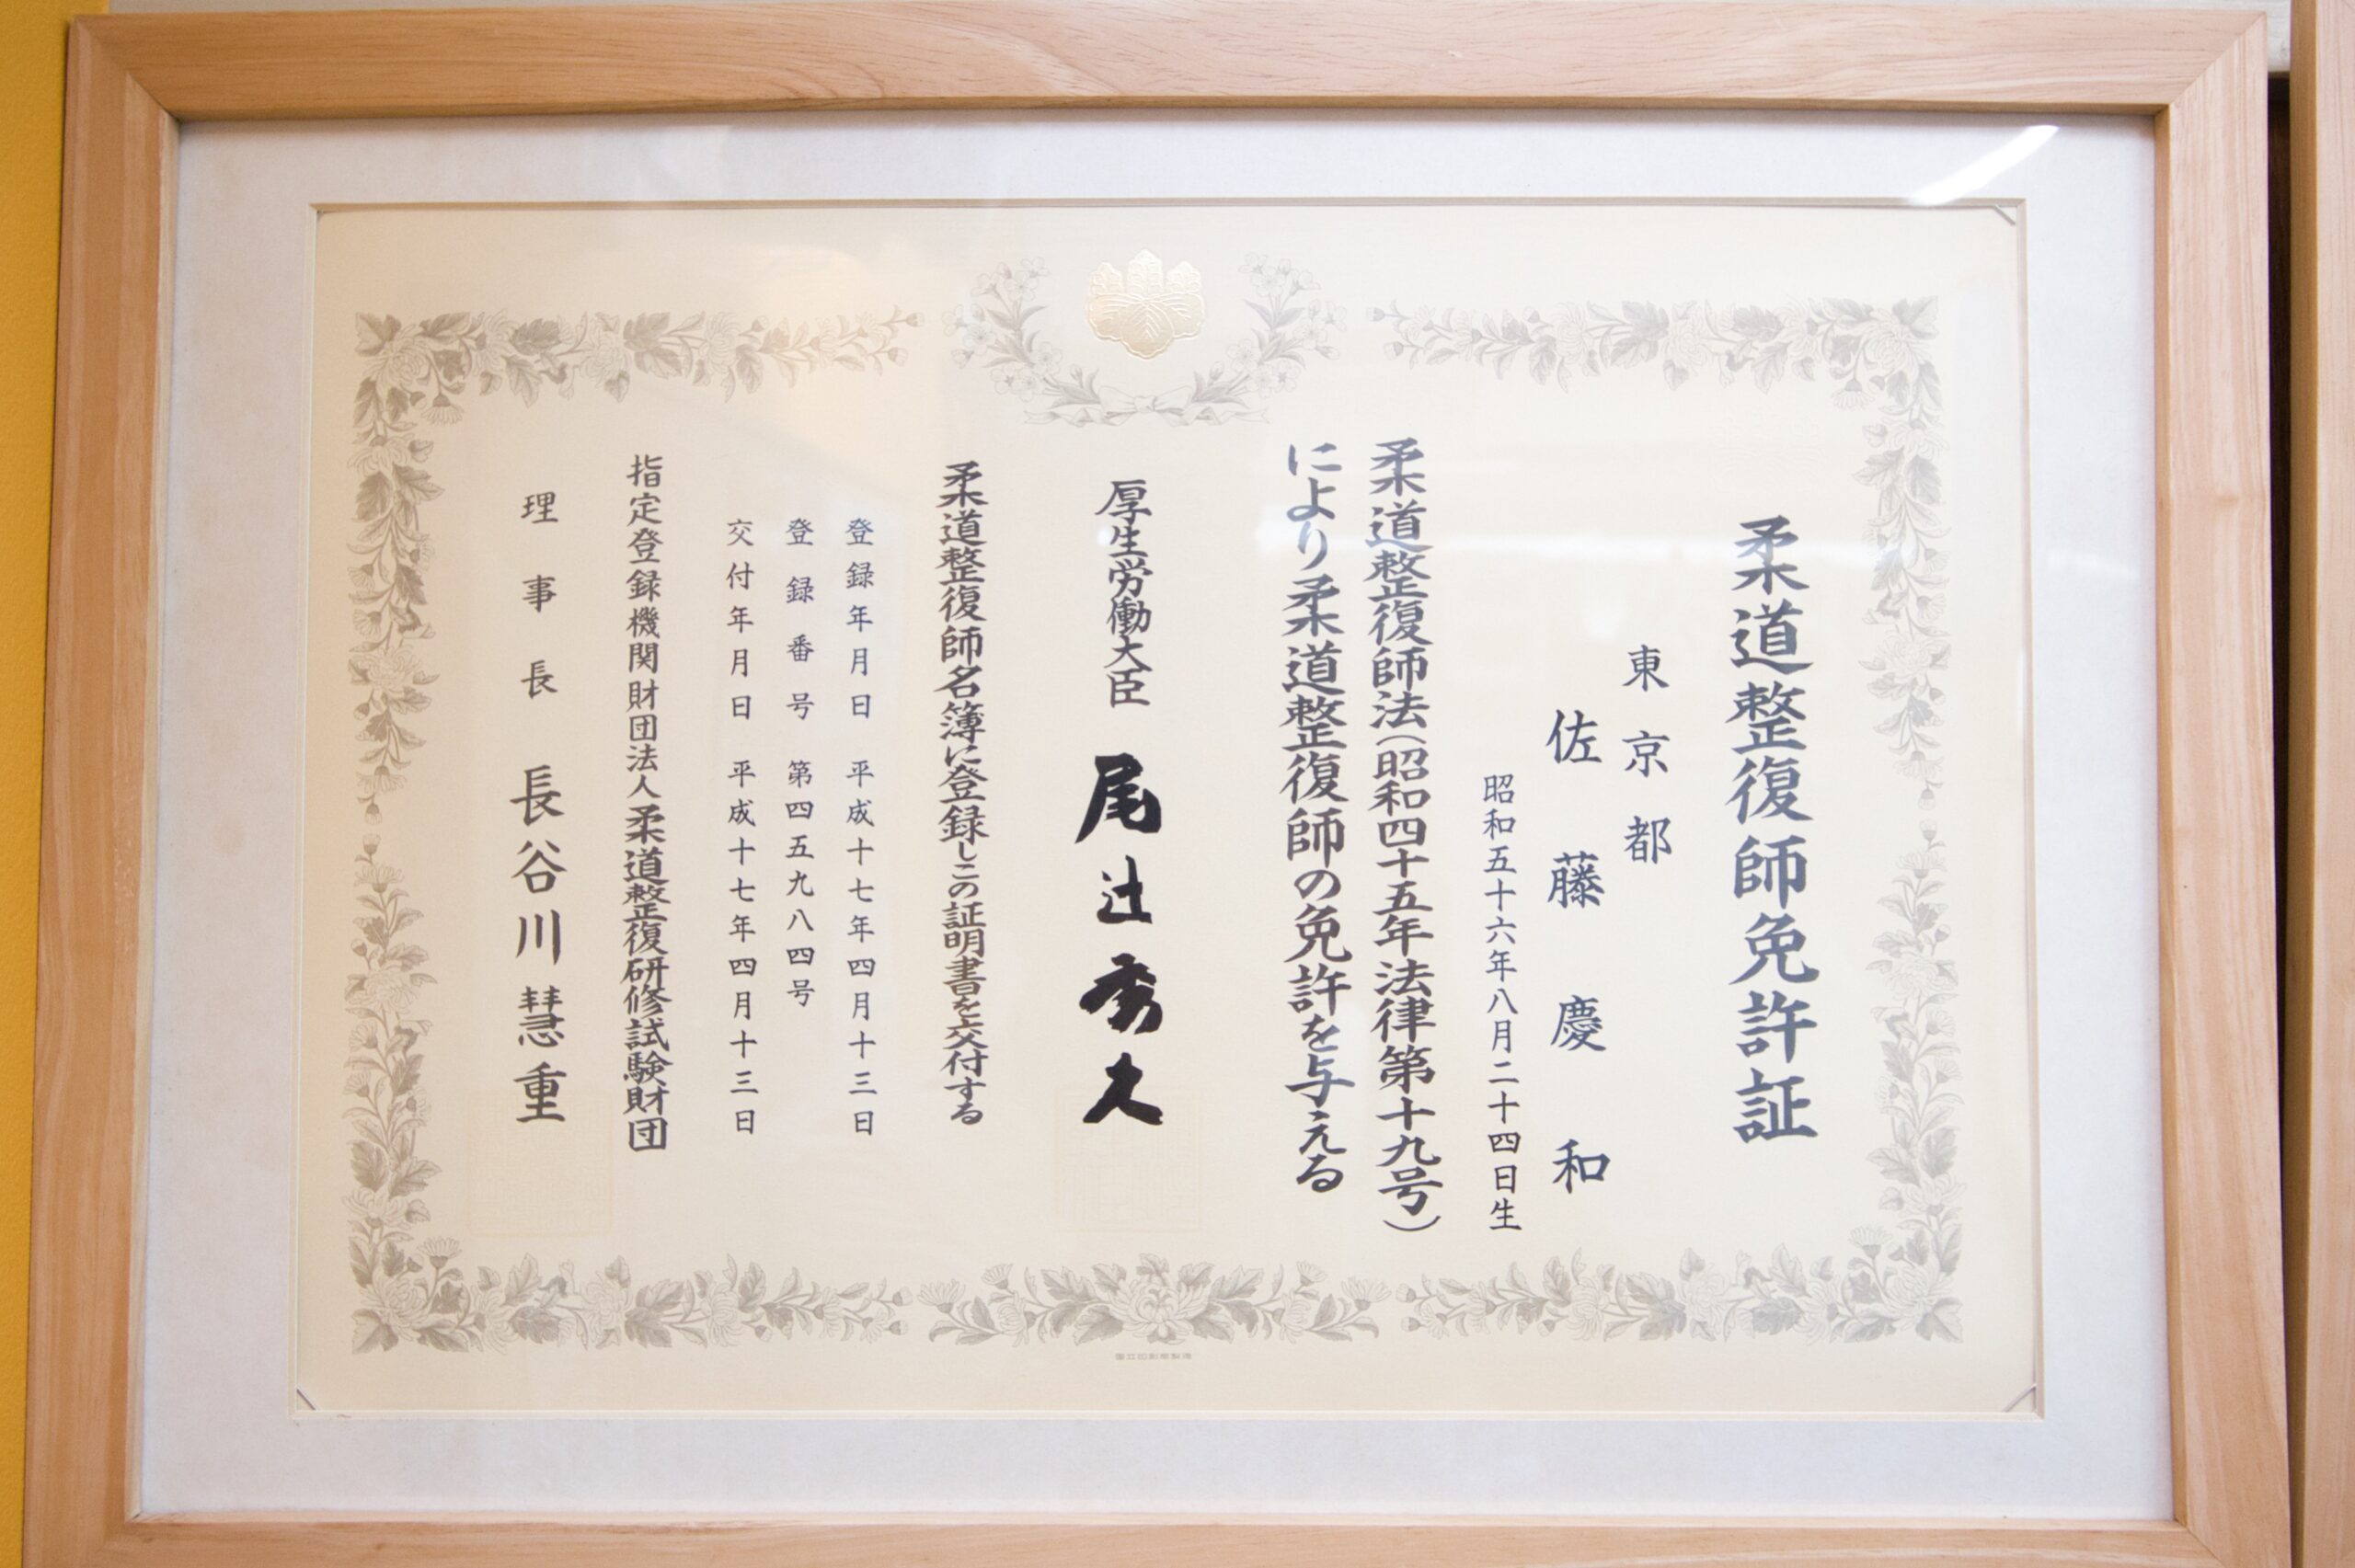 柔道整復師免許証
東京都
佐藤慶和
昭和五十六年八月二十四日生
柔道整復師法(昭和四十五年法律第十九号)
により柔道整復師の免許を与える
厚生労働大臣 尾辻秀久
柔道整復師名簿に登録しこの証明書を交付する
登録年月日 平成十七年四月十三日
登録番号 第四五九八四号
交付年月日 平成十七年四月十三日
指定登録機関財団法人柔道整復研修試験財団
理事長 長谷川慧重